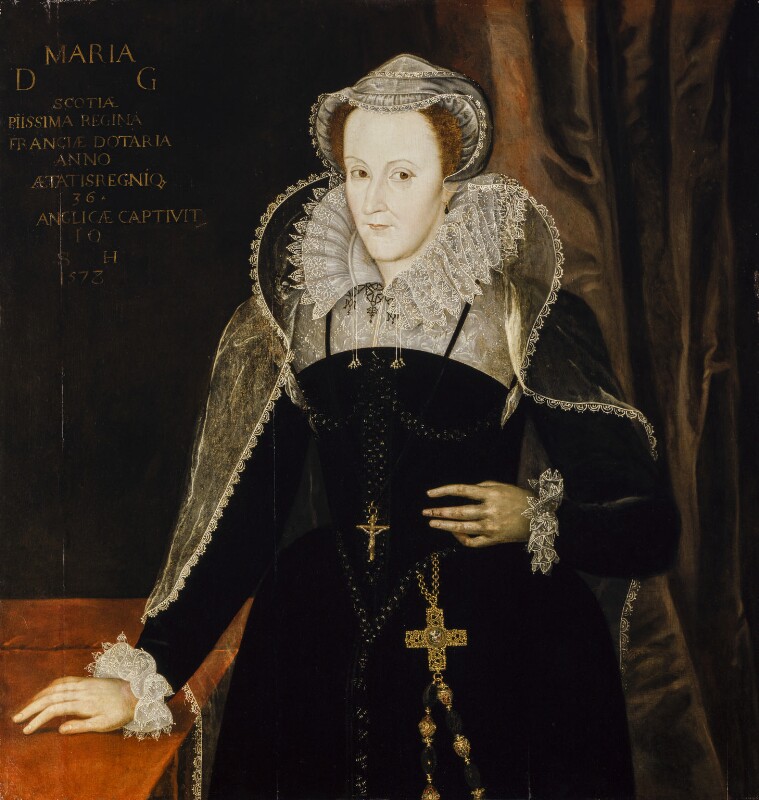 MARIA
D G
SCOTIÆ
PIISSIMA REGINA
FRANCIÆ DOTARIA
ANNO
ÆTATIS REGNIQ
36.
ANGLICÆ CAPTIVIT
10
S H
1578